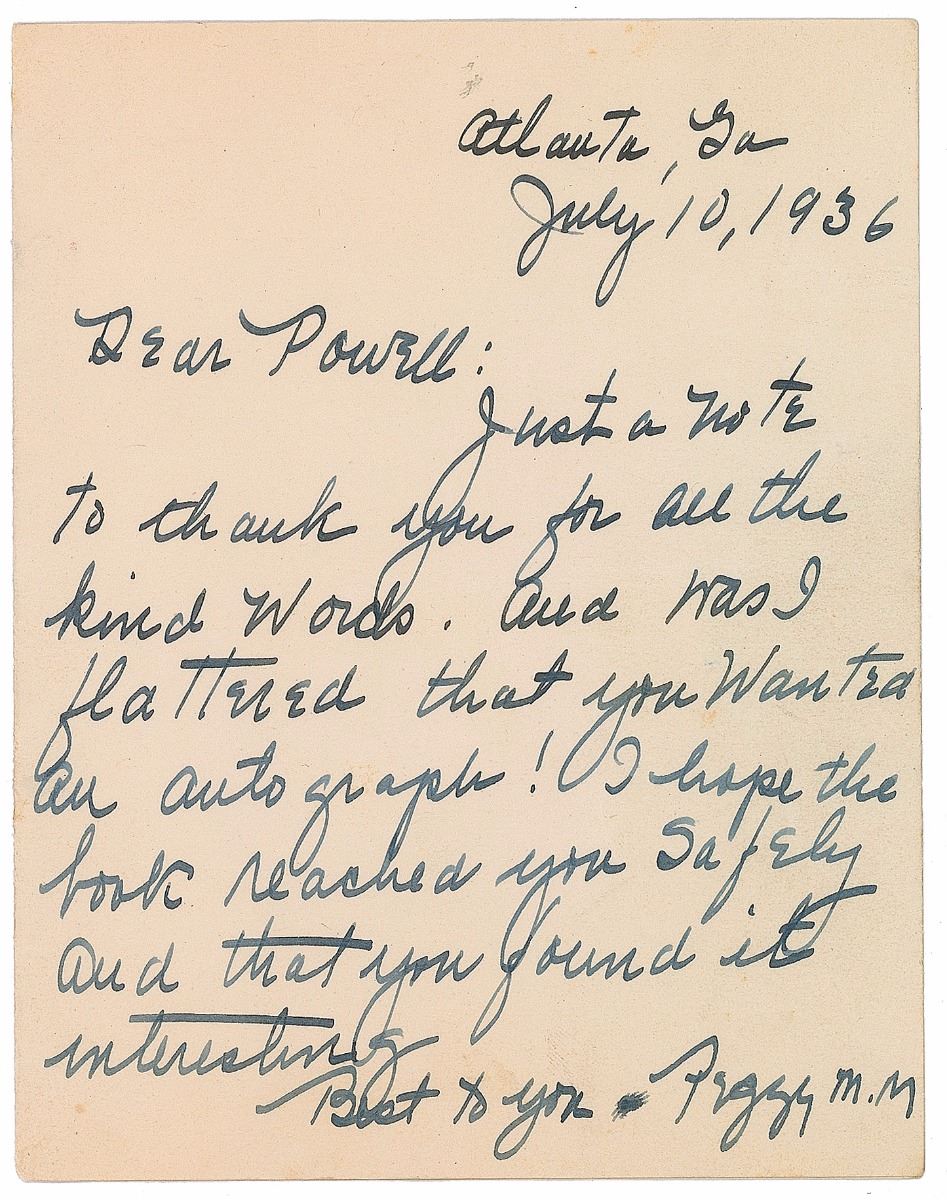 Atlanta, Ga
July 10, 1936
Dear Powell:
Just a note
to thank you for all the
kind words. And was I
flattered that you wanted
an autograph! I hope the
book reached you safely
and that you found it
interesting
Best to you - Peggy M. M